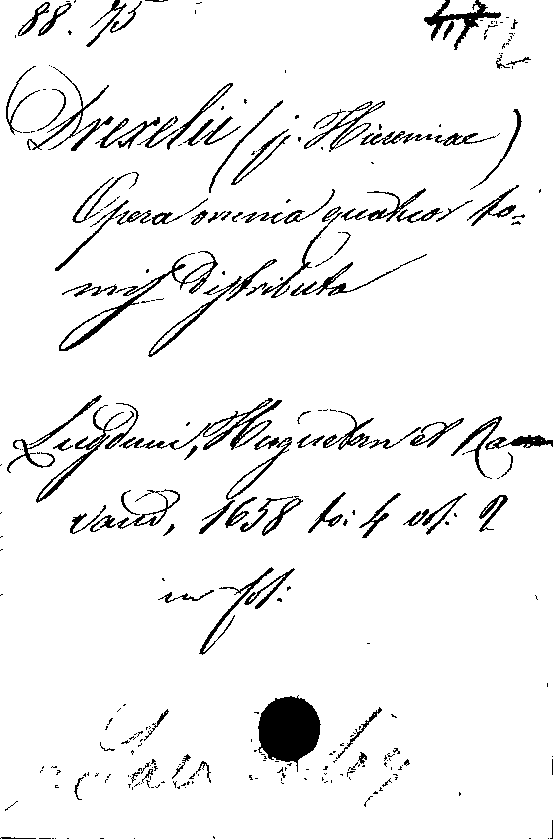 88. 75
Drexelii (p. Hieremiae)
Opera omnia quatuor to=
mis distributa
Lugduni, Huguetan et Ra
vaud, 1658 to: 4 vol: 2
in fol: